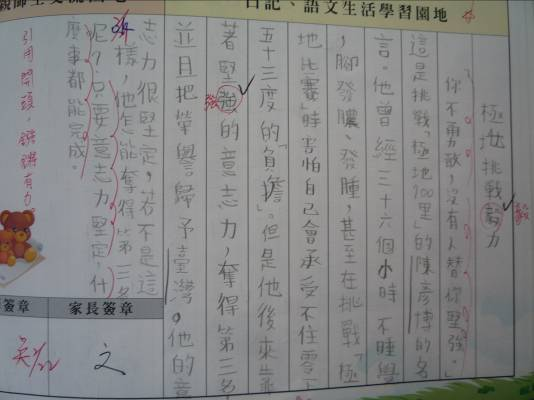 日記、語文生活學習園地
極地挑戰
毅力
「你不勇敢,沒有人替你堅強。」
這是挑戰「極地700里」的陳彥博的名
言。他曾經三十六個小時不睡覺
,腳發膿、發腫,甚至在挑戰「極
地比賽」時害怕自己會承受不住零下
五十三度的「負擔」。但是他後來
著堅強的意志力,奪得第三名
強
並且把榮譽歸予臺灣。他的意
志力很堅定,若不是這
樣,他怎能奪得第三名
呢?只要意志力堅定,什
麼事都能完成。
引用開頭,鏗鏘有力。
家長簽章
簽章
文